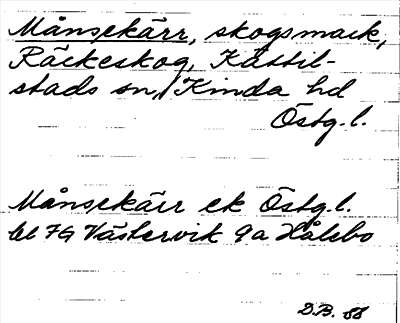 Månsekärr, skogsmark,
Räckeskog, Kättil-
stads sn, Kinda hd
Östg.l.
Månsekärr ek Östg.l.
bl 7G Västervik 9a Hålebo
D.B. 58